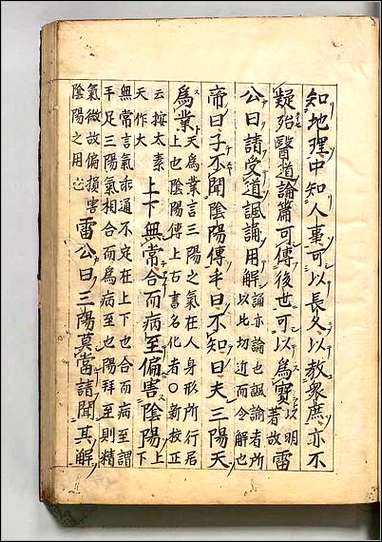 知地理中知人事可以長久以教衆庶亦不
疑殆醫道論篇可傳後世可以爲寶以明著故雷
公曰請受道諷誦用解誦亦論也諷諭者所以比切近而令解也
帝曰子不聞陰陽傳乎曰不知曰夫三陽天
爲業天爲業言三陽之氣在人身形所行居上也陰陽傳上古書名化者○新校正
云按太素天作大上下無常合而病至偏害陰陽上下
無常言氣乖通不定在上下也合而病至謂手足三陽氣相合而爲病至也陽拜至則精
氣微故偏損害陰陽之用也雷公曰三陽莫當請聞其解